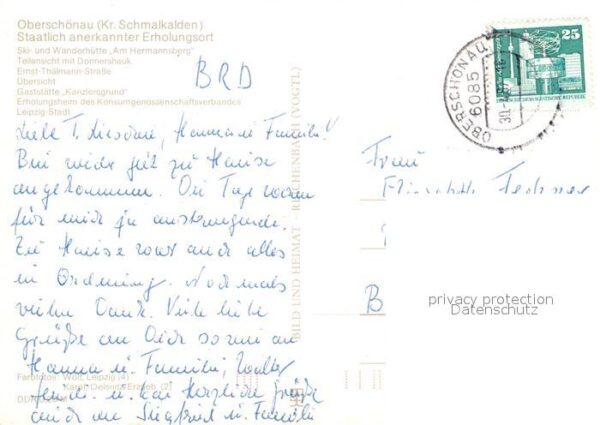 Oberschönau (Kr. Schmalkalden)
Staatlich anerkannter Erholungsort
Ski- und Wanderhütte „Am Hermannsberg"
Teilansicht mit Donnershauk
Ernst-Thälmann-Straße
Übersicht
Gaststätte „Kanzlersgrund"
Erholungsheim des Konsumgenossenschaftsverbandes
Leipzig-Stadt
BRD
Liebe T. Hanna u. Familie!
Bin wieder gut zu Hause
angekommen. Die Tage waren
für mich zu anstrengend.
Zu Hause war auch alles
in Ordnung. Nochmals
vielen Dank. Viele liebe
Grüße an Dich sowie an
Hanna u. Familie, Walter
u. herzliche Grüße
auch an Siegfried u. Familie
Farbfotos: Wolf, Leipzig (4)
BILD UND HEIMAT REICHENBACH (VOGTL)
25
OBERSCHÖNAU
6085
Frau
Elisabeth
B
privacy protection
Datenschutz